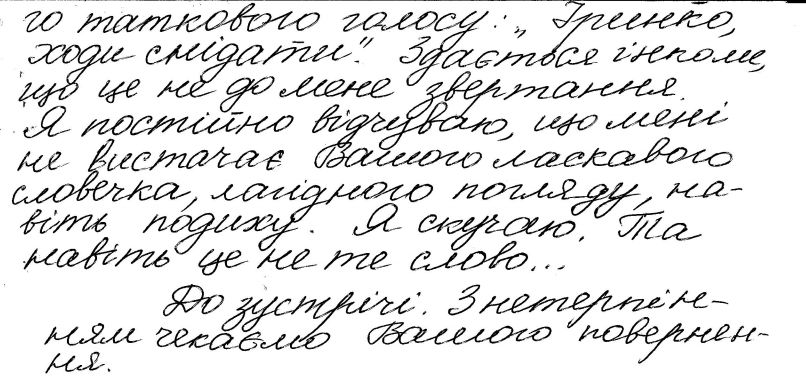 го таткового голосу: „Іринко,
ходи снідати". Здається інколи,
що це не до мене звертання.
Я постійно відчуваю, що мені
не вистачає Вашого ласкавого
словечка, лагідного погляду, на-
віть подиху. Я скучаю. Та
навіть це не те слово...
До зустрічі. З нетерпін-
ням чекаємо Вашого повернен-
ня.